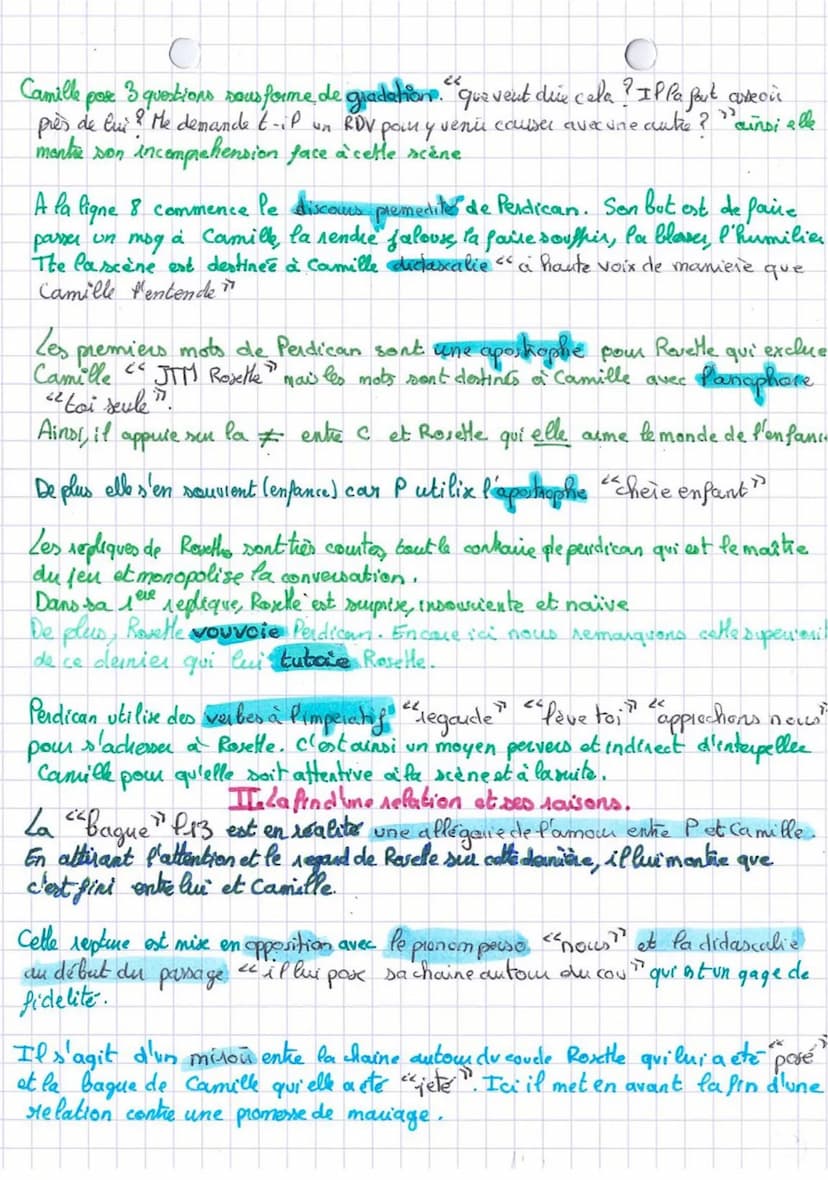 Camille pose 3 questions sous forme de gradation. "que veut dire cela ? Il la fait asseoir
près de lui ? Me demande t-il un RDV pour y venir causer avec une autre ?" ainsi elle
montre son incomprehension face à cette scène
A la ligne 8 commence le discours premedité de Perdican. Son but est de faire
passer un msg à Camille, la rendre jalouse, la faire souffrir, la blesser, l'humilier
Tte la scène est destinée à Camille didascalie "à haute voix de manière que
Camille l'entende"
Les premiers mots de Perdican sont une apostrophe pour Rosette qui exclue
Camille "JTM Rosette" mais les mots sont destinés à Camille avec l'anaphore
"toi seule".
Ainsi, il appuie sur la ≠ entre C et Rosette qui elle aime le monde de l'enfance
De plus elle s'en souvient (enfance) car P utilise l'apostrophe "chère enfant"
Les repliques de Rosette sont très courtes, tout le contraire de perdican qui est le maître
du jeu et monopolise la conversation.
Dans sa 1ère replique, Rosette est surprise, insouciente et naïve
De plus, Rosette vouvoie Perdican. Encore ici nous remarquons cette superiorité
de ce dernier qui lui tutoie Rosette.
Perdican utilise des verbes à l'imperatif "regarde" "lève toi" "approchons nous"
pour s'adresser à Rosette. C'est ainsi un moyen pervers et indirect d'interpeller
Camille pour qu'elle soit attentive à la scène et à la suite.
II. La fin d'une relation et ses raisons.
La "bague" l.13 est en réalité une allégorie de l'amour entre P et Camille.
En attirant l'attention et le regard de Rosette sur cette dernière, il lui montre que
c'est fini entre lui et Camille.
Cette rupture est mise en opposition avec le pronom perso "nous" et la didascalie
au début du passage "il lui pose sa chaine autour du cou" qui est un gage de
fidelité.
Il s'agit d'un miroir entre la chaine autour du cou de Rosette qui lui a été "posé"
et la bague de Camille qui elle a été "jeté". Ici il met en avant la fin d'une
relation contre une promesse de mariage.